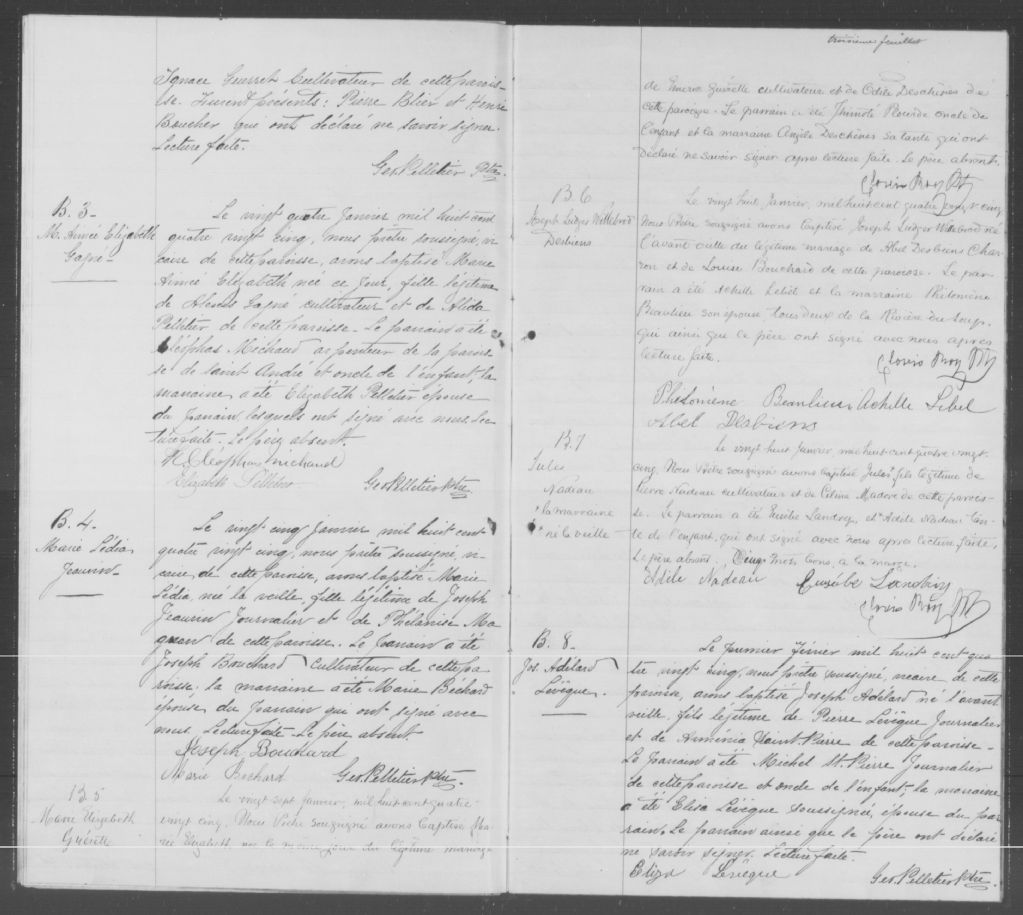 Ignace Guerret Cultivateur de cette parois-
se. Furent présents : Pierre Blier et Henri
Boucher qui ont déclaré ne savoir signer
Lecture faite.
Geo. Pelletier Ptre.
B. 3 -
M. Aimée Elizabeth
Gagné -
Le vingt quatre Janvier mil huit cent
quatre vingt cinq, nous prêtre soussigné, vi-
caire de cette paroisse, avons baptisé Marie
Aimée Elizabeth née ce jour, fille légitime
de Gagné cultivateur et de Alida
Pelletier de cette paroisse. Le parrain a été
Cléophas Michaud arpenteur de la parois-
se de Saint André et oncle de l'enfant, la
marraine a été Elizabeth Pelletier épouse
du parrain lesquels ont signé avec nous. Lec-
ture faite. Le père absent.
Cléophas Michaud
Elizabeth Pelletier Geo Pelletier Ptre
B. 4.
Marie Lédia
Jeanvin
Le vingt cinq janvier mil huit cent
quatre vingt cinq, nous prêtre soussigné, vi-
caire de cette paroisse, avons baptisé Marie
Lédia, née la veille, fille légitime de Joseph
Jeanvin Journalier et de Phélanise Ma-
de cette paroisse. Le parrain a été
Joseph Bouchard cultivateur de cette pa-
roisse, la marraine a été Marie Béchard
épouse du parrain qui ont signé avec
nous. Lecture faite. Le père absent.
Joseph Bouchard
Marie Bechard Geo. Pelletier Ptre
B 5
Marie Elizabeth
Guérette
Le vingt sept Janvier, mil huit cent quatre
vingt cinq. Nous Prêtre soussigné avons baptisé Ma-
rie Elizabeth, née le même jour du légitime mariage
troisième feuillet
de Guérette cultivateur et de Odile Deschènes de
cette paroisse. Le parrain a été Thimoté Plourde oncle de
l'enfant et la marraine Angèle Deschènes sa tante qui ont
déclaré ne savoir signer apres lecture faite. Le père absent.
Clovis Roy Ptr
B 6
Joseph Ludger Willebrod
Desbiens
Le vingt huit Janvier, mil huit cent quatre vingt cinq
Nous Prêtre soussigné avons baptisé Joseph Ludger Willebrod né
l'avant veille du légitime mariage de Abel Desbiens Char-
ron et de Louise Bouchard de cette paroisse. Le par-
rain a été Achille Lebel et la marraine Philomène
Beaulieu son épouse tous deux de la Rivière du Loup.
qui ainsi que le père ont signé avec nous apres
lecture faite.
Clovis Roy Ptr
Philomène Beaulieu Achille Lebel
Abel Desbiens
B 7
Jules
Nadeau
la marraine
Le vingt huit Janvier, mil huit cent quatre vingt
cinq. Nous Prêtre soussigné avons baptisé Jules fils légitime de
Pierre Nadeau cultivateur et de Céline Madore de cette parois-
se. Le parrain a été Landry, et Adèle Nadeau tan-
te de l'enfant, qui ont signé avec nous apres lecture faite.
Le père absent. Cinq mots bons, a la marge.
Adèle Nadeau Landry
Clovis Roy Ptr
B. 8 -
Jos. Adélard
Lévêque
Le premier Février mil huit cent qua-
tre vingt cinq, nous prêtre soussigné, vicaire de cette
paroisse, avons baptisé Joseph Adélard né l'avant
veille, fils légitime de Pierre Lévêque Journalier
et de Arménia Saint-Pierre de cette paroisse -
Le parrain a été Michel St. Pierre Journalier
de cette paroisse et oncle de l'enfant, la marraine
a été Elisa Lévêque soussignée, épouse du par-
rain. Le parrain ainsi que le père ont déclaré
ne savoir signer. Lecture faite.
Eliza Levêque Geo. Pelletier Ptre